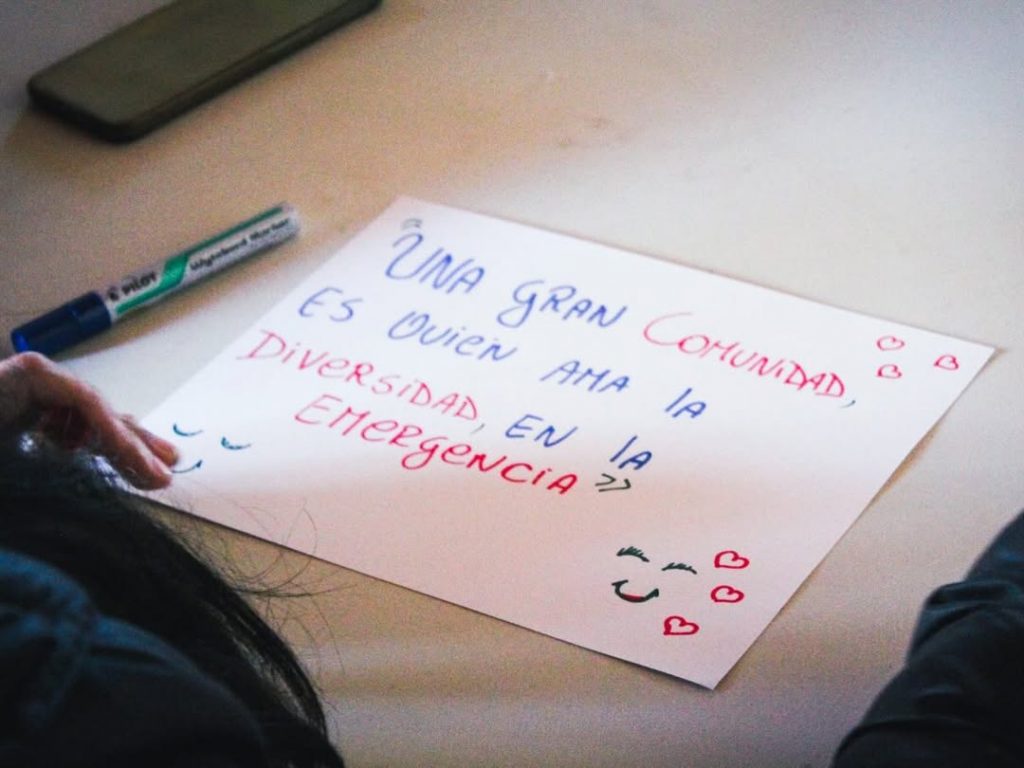 "UNA GRAN COMUNIDAD,
ES QUIEN AMA LA
DIVERSIDAD, EN LA
EMERGENCIA »
PILOT Wyteboard Marker